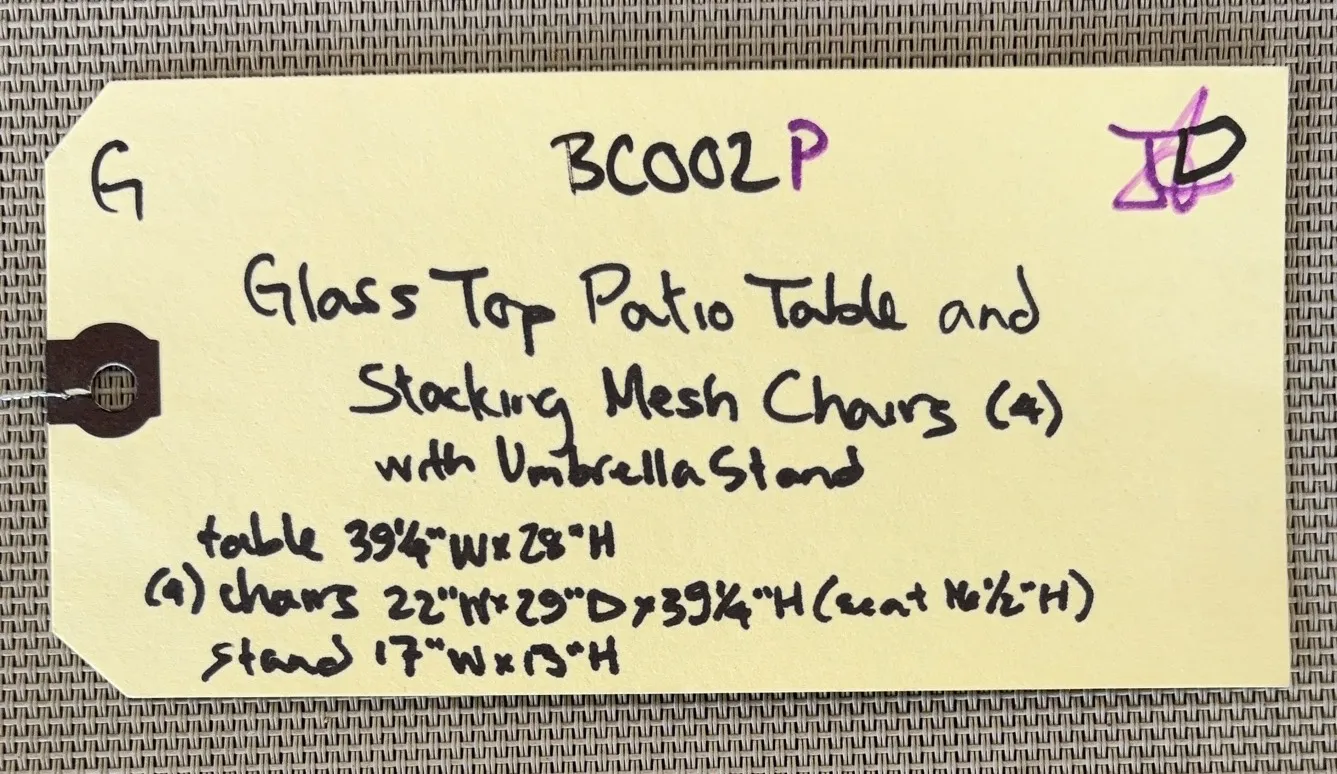 G BC002P D
Glass Top Patio Table and
Stacking Mesh Chairs (4)
with Umbrella Stand
table 39¼"W x 28"H
(4) chairs 22"W x 29"D x 39¼"H (seat 16½"H)
stand 17"W x 13"H